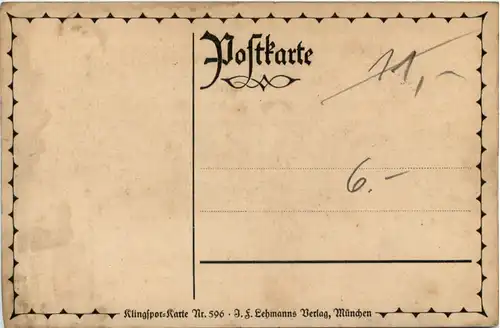 Postkarte
11,-
6.-
Klingspor-Karte Nr. 596 · J. F. Lehmanns Verlag, München